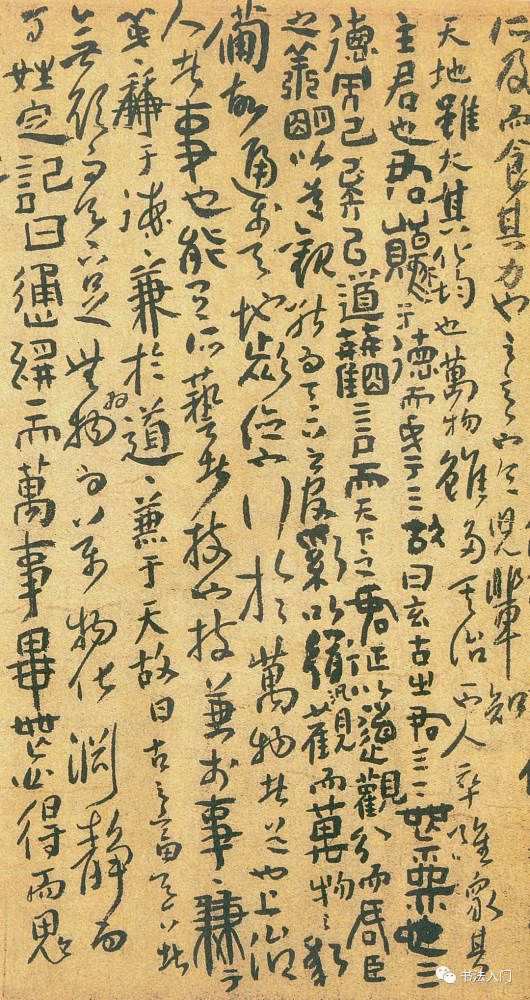 所及而食其力也
天地雖大其化均也萬物雖多其治一也人卒雖眾其
主君也君原于德而成于天故曰玄古之君天下無為也天
德而已矣以道觀言而天下之君正以道觀分而君臣
之義明以道觀能而天下之官治以道汎觀而萬物之應
備故通於天地者德也行於萬物者道也上治
人者事也能有所藝者技也技兼於事〻兼于
義〻兼于德〻兼於道〻兼于天故曰古之畜天下者
無欲而天下足無為而萬物化淵靜而
百姓定記曰通於一而萬事畢無心得而鬼
书法入门